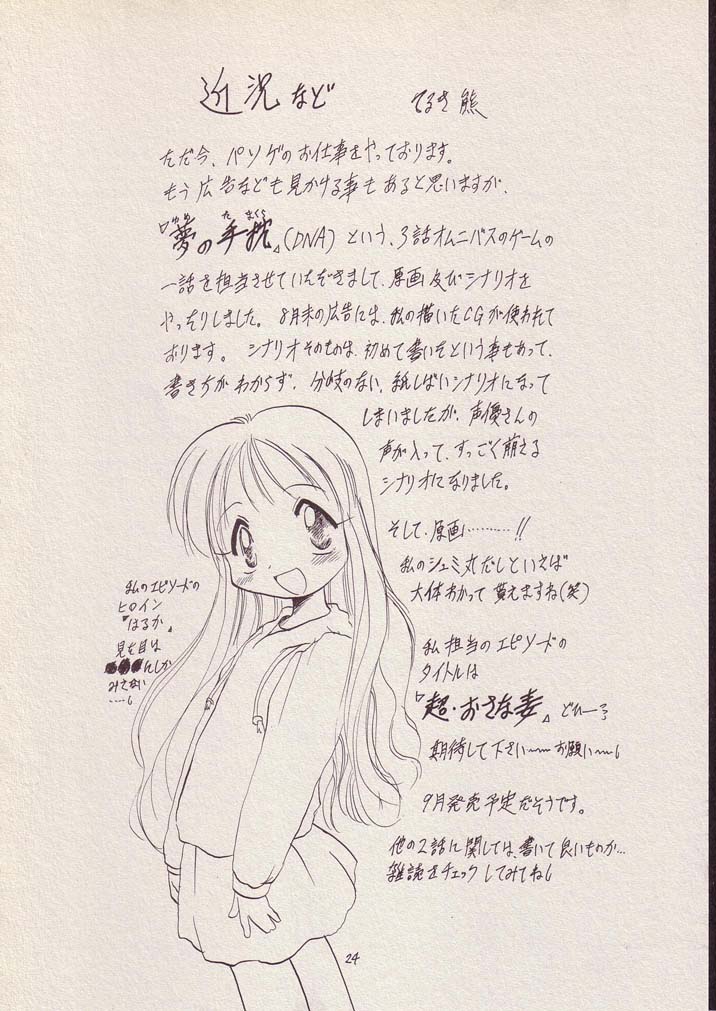 近況など
てるき熊
ただ今、パソゲのお仕事をやっております。
もう広告なども見かける事もあると思いますが、
『夢の手枕』(DNA)という、3話オムニバスのゲームの
ゆめ た まくら
一話を担当させていただきまして、原画及びシナリオを
やったりしました。8月末の広告には、私の描いたCGが使われて
おります。シナリオそのものは、初めて書いたという事もあって、
書き方がわからず、分岐のない、紙しばいシナリオになって
しまいましたが、声優さんの
声が入って、すっごく萌える
シナリオになりました。
そして、原画………!!
私のシュミ丸だしといえば
大体わかって貰えますね(笑)
私のエピソードの
ヒロイン
『はるか』
見た目は
●●●にしか
みえない
私担当のエピソードの
タイトルは
『超・おさな妻』どひーっ
期待して下さい〜〜お願い〜〜
9月発売予定だそうです。
他の2話に関しては、書いて良いものか…
雑誌をチェックしてみてね
24